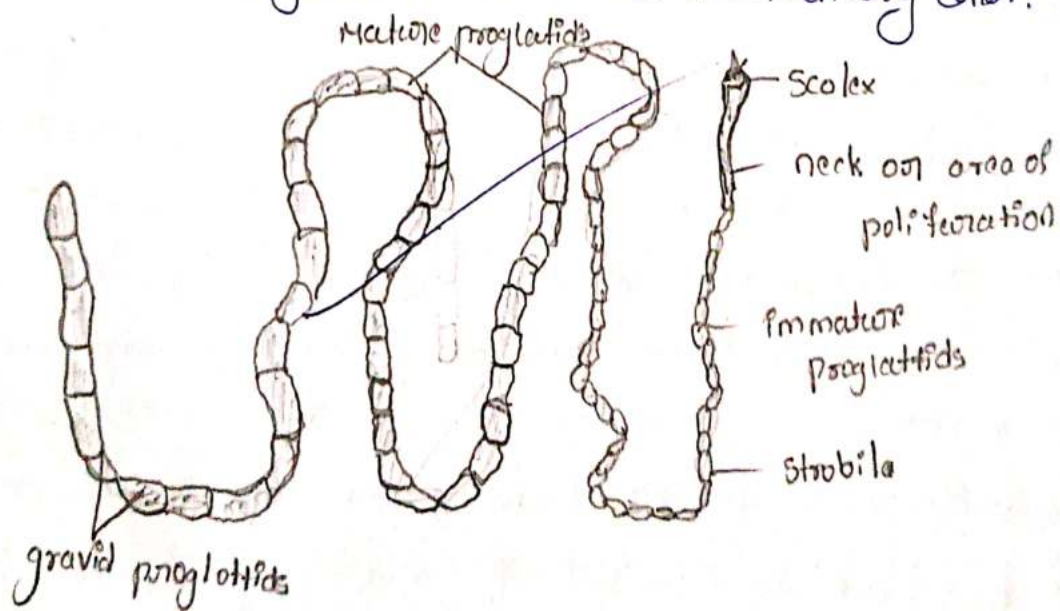 Mature proglatids
Scolex
neck or area of
poliferation
immature
proglattids
Strobila
gravid proglottids